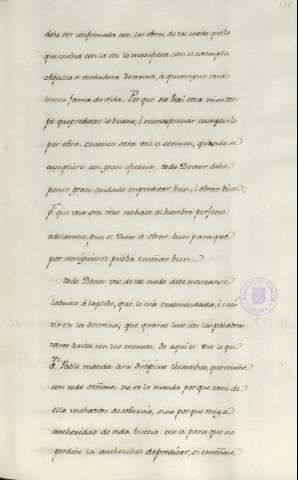 debe ser confirmada con las obras, de tal modo que lo
que enseña con la voz lo manifieste con el exemplo
aquella es verdadera doctrina, à quien sigue una
buena forma de vida. Por que no hai cosa mas tor-
pe que predicar lo bueno, i menospreciar cumplirlo
por obra. entonces otra util el sermon, quando se
cumpliere con gran eficacia. todo Doctor debe
poner gran cuidado en predicar bien, i obrar bien;
que uno sin otro no hace al hombre perfecto
adelante, pues el Justo à obrar bien para que
por consiguiente pueda enseñar bien.
todo Doctor de tal modo debe
la plebe, que le està encomendada, i
en la doctrina, que quanto luce con las palabras
tanto brille con los meritos. de aqui es que lo que
S. Pablo manda à su discipulo Thimotheo, que enseñe
con todo señorio; no se lo manda por que
ello inchazon de sobervia, sino por que tenga
authoridad de vida buena. esto es para que no
perdiese la authoridad de predicar, si enseñare